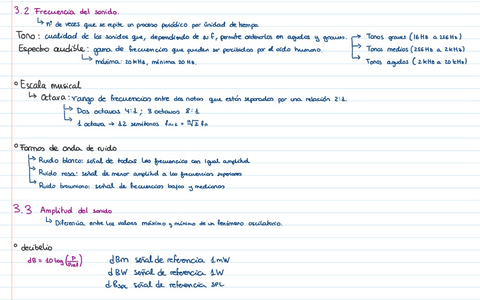 3.2 Frecuencia del sonido.
↳ nº de veces que se repite un proceso periódico por unidad de tiempo.
Tono: cualidad de los sonidos que, dependiendo de su f, permite ordenarlos en agudos y graves.
Tonos graves (16 Hz a 256 Hz)
Espectro audible: gama de frecuencias que pueden ser percibidas por el oído humano.
Tonos medios (256 Hz a 2 kHz)
↳ máxima: 20 kHz, mínima 20 Hz.
Tonos agudos (2 kHz a 20 kHz)
Escala musical
↳ Octava: rango de frecuencias entre dos notas que están separadas por una relación 2:1.
Dos octavas 4:1; 3 octavas 8:1
1 octava → 12 semitonos fₙ₊₁ = ¹²√2 fₙ
Formas de onda de ruido
Ruido blanco: señal de todas las frecuencias con igual amplitud
Ruido rosa: señal de menor amplitud a las frecuencias superiores
Ruido browniano: señal de frecuencias bajas y medianas
3.3 Amplitud del sonido
↳ Diferencia entre los valores máximo y mínimo de un fenómeno oscilatorio.
decibelio
dB = 10 log (P/Pref)
dBm señal de referencia 1 mW
dBW señal de referencia 1 W
dBSPL señal de referencia SPL